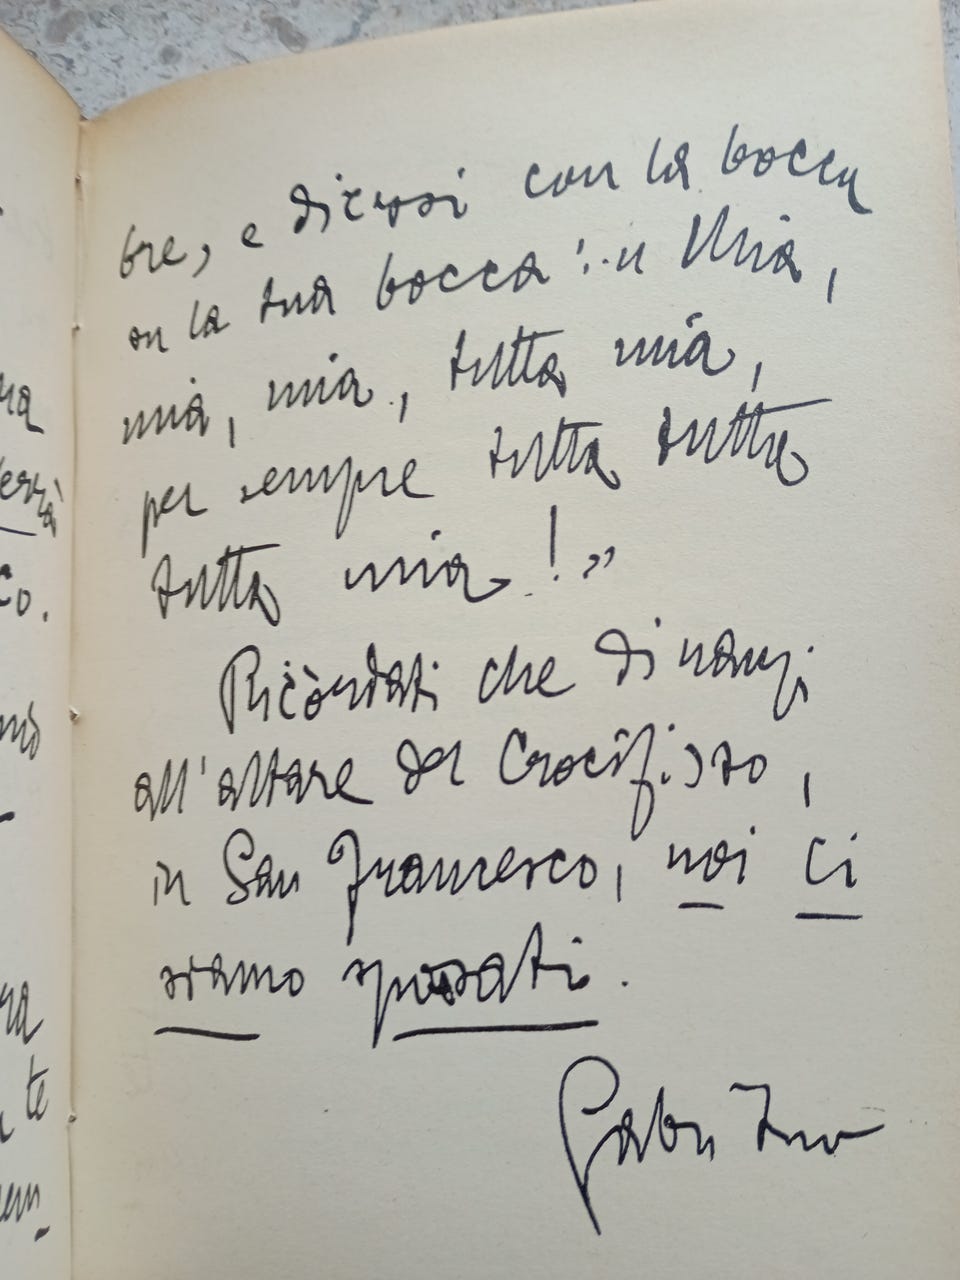 bre, e dirsi con la bocca
su la tua bocca: « Mia,
mia, mia, tutta mia,
per sempre tutta tutta
tutta mia! »
Ricòrdati che dinanzi
all'altare del Crocifisso,
in San Francesco, noi ci
siamo sposati.
Gabri Tuo
ra
co.
ra
te